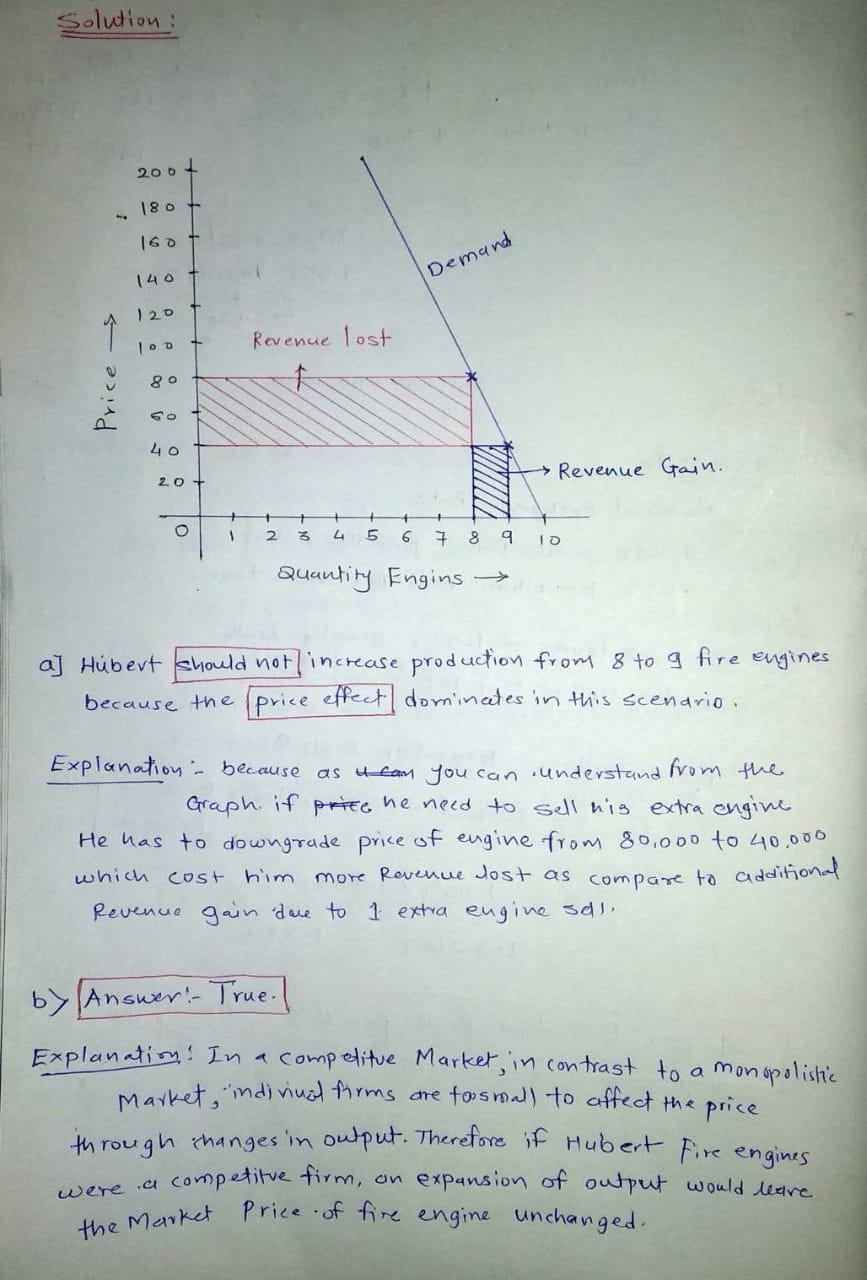 Solution :
200
180
160
140
120
100
80
60
40
20
0 1 2 3 4 5 6 7 8 9 10
Price →
Demand
Revenue lost
→ Revenue Gain.
Quantity Engins →
a] Hubert should not increase production from 8 to 9 fire engines
because the price effect dominates in this scenario.
Explanation :- because as u can you can understand from the
Graph. if price he need to sell his extra engine
He has to downgrade price of engine from 80,000 to 40,000
which cost him more Revenue lost as compare to additional
Revenue gain due to 1 extra engine sell.
b) Answer :- True.
Explanation : In a competitve Market, in contrast to a monopolistic
Market, indiviual firms are too small to affect the price
through changes in output. Therefore if Hubert Fire engines
were a competitve firm, an expansion of output would leave
the Market Price of fire engine unchanged.